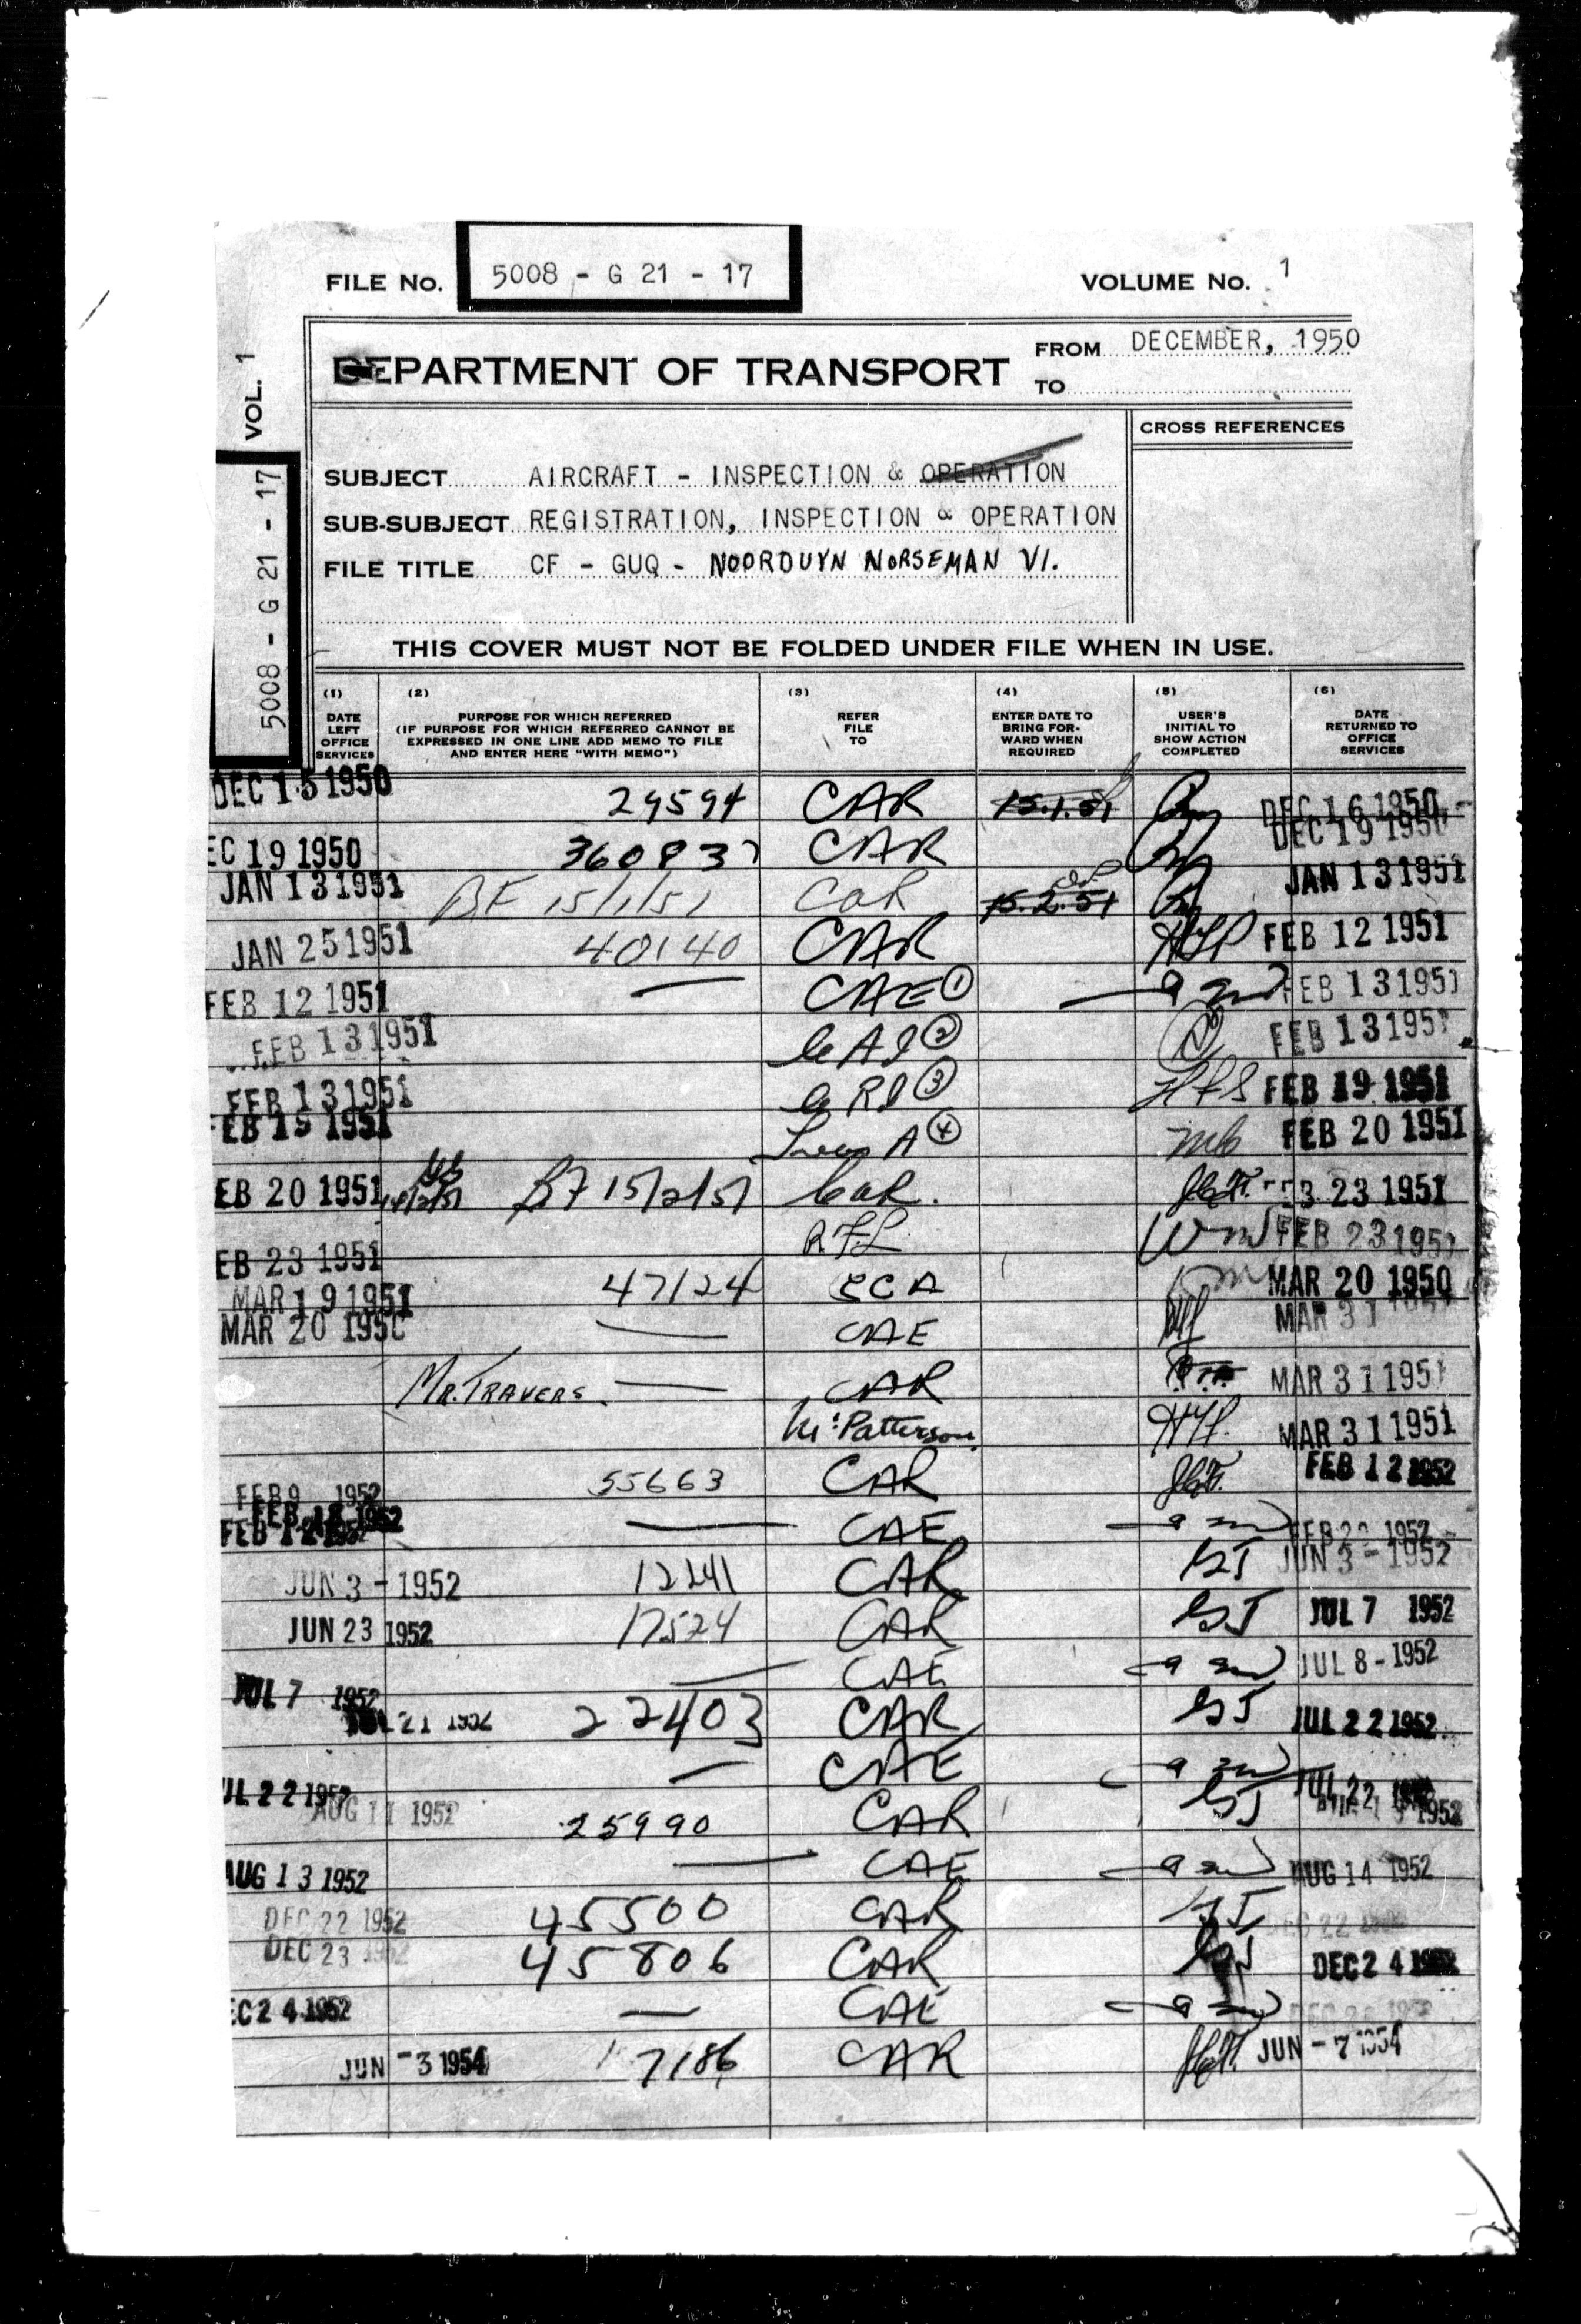 FILE No. 5008 - G 21 - 17 VOLUME No. 1
VOL. 1
5008 - G 21 - 17
DEPARTMENT OF TRANSPORT
FROM DECEMBER, 1950
TO
CROSS REFERENCES
SUBJECT AIRCRAFT - INSPECTION & OPERATION
SUB-SUBJECT REGISTRATION, INSPECTION & OPERATION
FILE TITLE CF - GUQ - NOORDUYN NORSEMAN VI.
THIS COVER MUST NOT BE FOLDED UNDER FILE WHEN IN USE.
(1) DATE LEFT OFFICE SERVICES
(2) PURPOSE FOR WHICH REFERRED (IF PURPOSE FOR WHICH REFERRED CANNOT BE EXPRESSED IN ONE LINE ADD MEMO TO FILE AND ENTER HERE "WITH MEMO")
(3) REFER FILE TO
(4) ENTER DATE TO BRING FOR- WARD WHEN REQUIRED
(5) USER'S INITIAL TO SHOW ACTION COMPLETED
(6) DATE RETURNED TO OFFICE SERVICES
DEC 15 1950 29594 CAR 15.1.51 DEC 16 1950
EC 19 1950 360837 CAR DEC 19 1950
JAN 13 1951 BF 15/1/51 CAR 15.2.51 JAN 13 1951
JAN 25 1951 40140 CAR FEB 12 1951
FEB 12 1951 — CAE ① FEB 13 1951
FEB 13 1951 CAI ② FEB 13 1951
FEB 13 1951 CRI ③ HFS FEB 19 1951
EB 19 1951 A ④ FEB 20 1951
EB 20 1951 14/2/51 BF 15/2/51 CAR. 23 1951
EB 23 1951 R.F.L. FEB 23 1951
MAR 19 1951 47124 SCA MAR 20 1950
MAR 20 1950 — CAE MAR 31
MR. TRAVERS. — CAR MAR 31 1951
Mr. Patterson. MAR 31 1951
FEB 9 1952 55663 CAR FEB 12 1952
FEB 12 1952 — CAE FEB 22 1952
JUN 3 - 1952 12241 CAR JUN 3 - 1952
JUN 23 1952 17524 CAR JUL 7 1952
JUL 7 1952 — CAE JUL 8 - 1952
JUL 21 1952 22403 CAR JUL 22 1952
UL 22 1952 — CAE JUL 22
AUG 11 1952 25990 CAR 1952
AUG 13 1952 — CAE AUG 14 1952
DEC 22 1952 45500 CAR DEC 22
DEC 23 1952 45806 CAR DEC 24 1952
EC 24 1952 — CAE
JUN - 3 1954 7186 CAR JUN - 7 1954